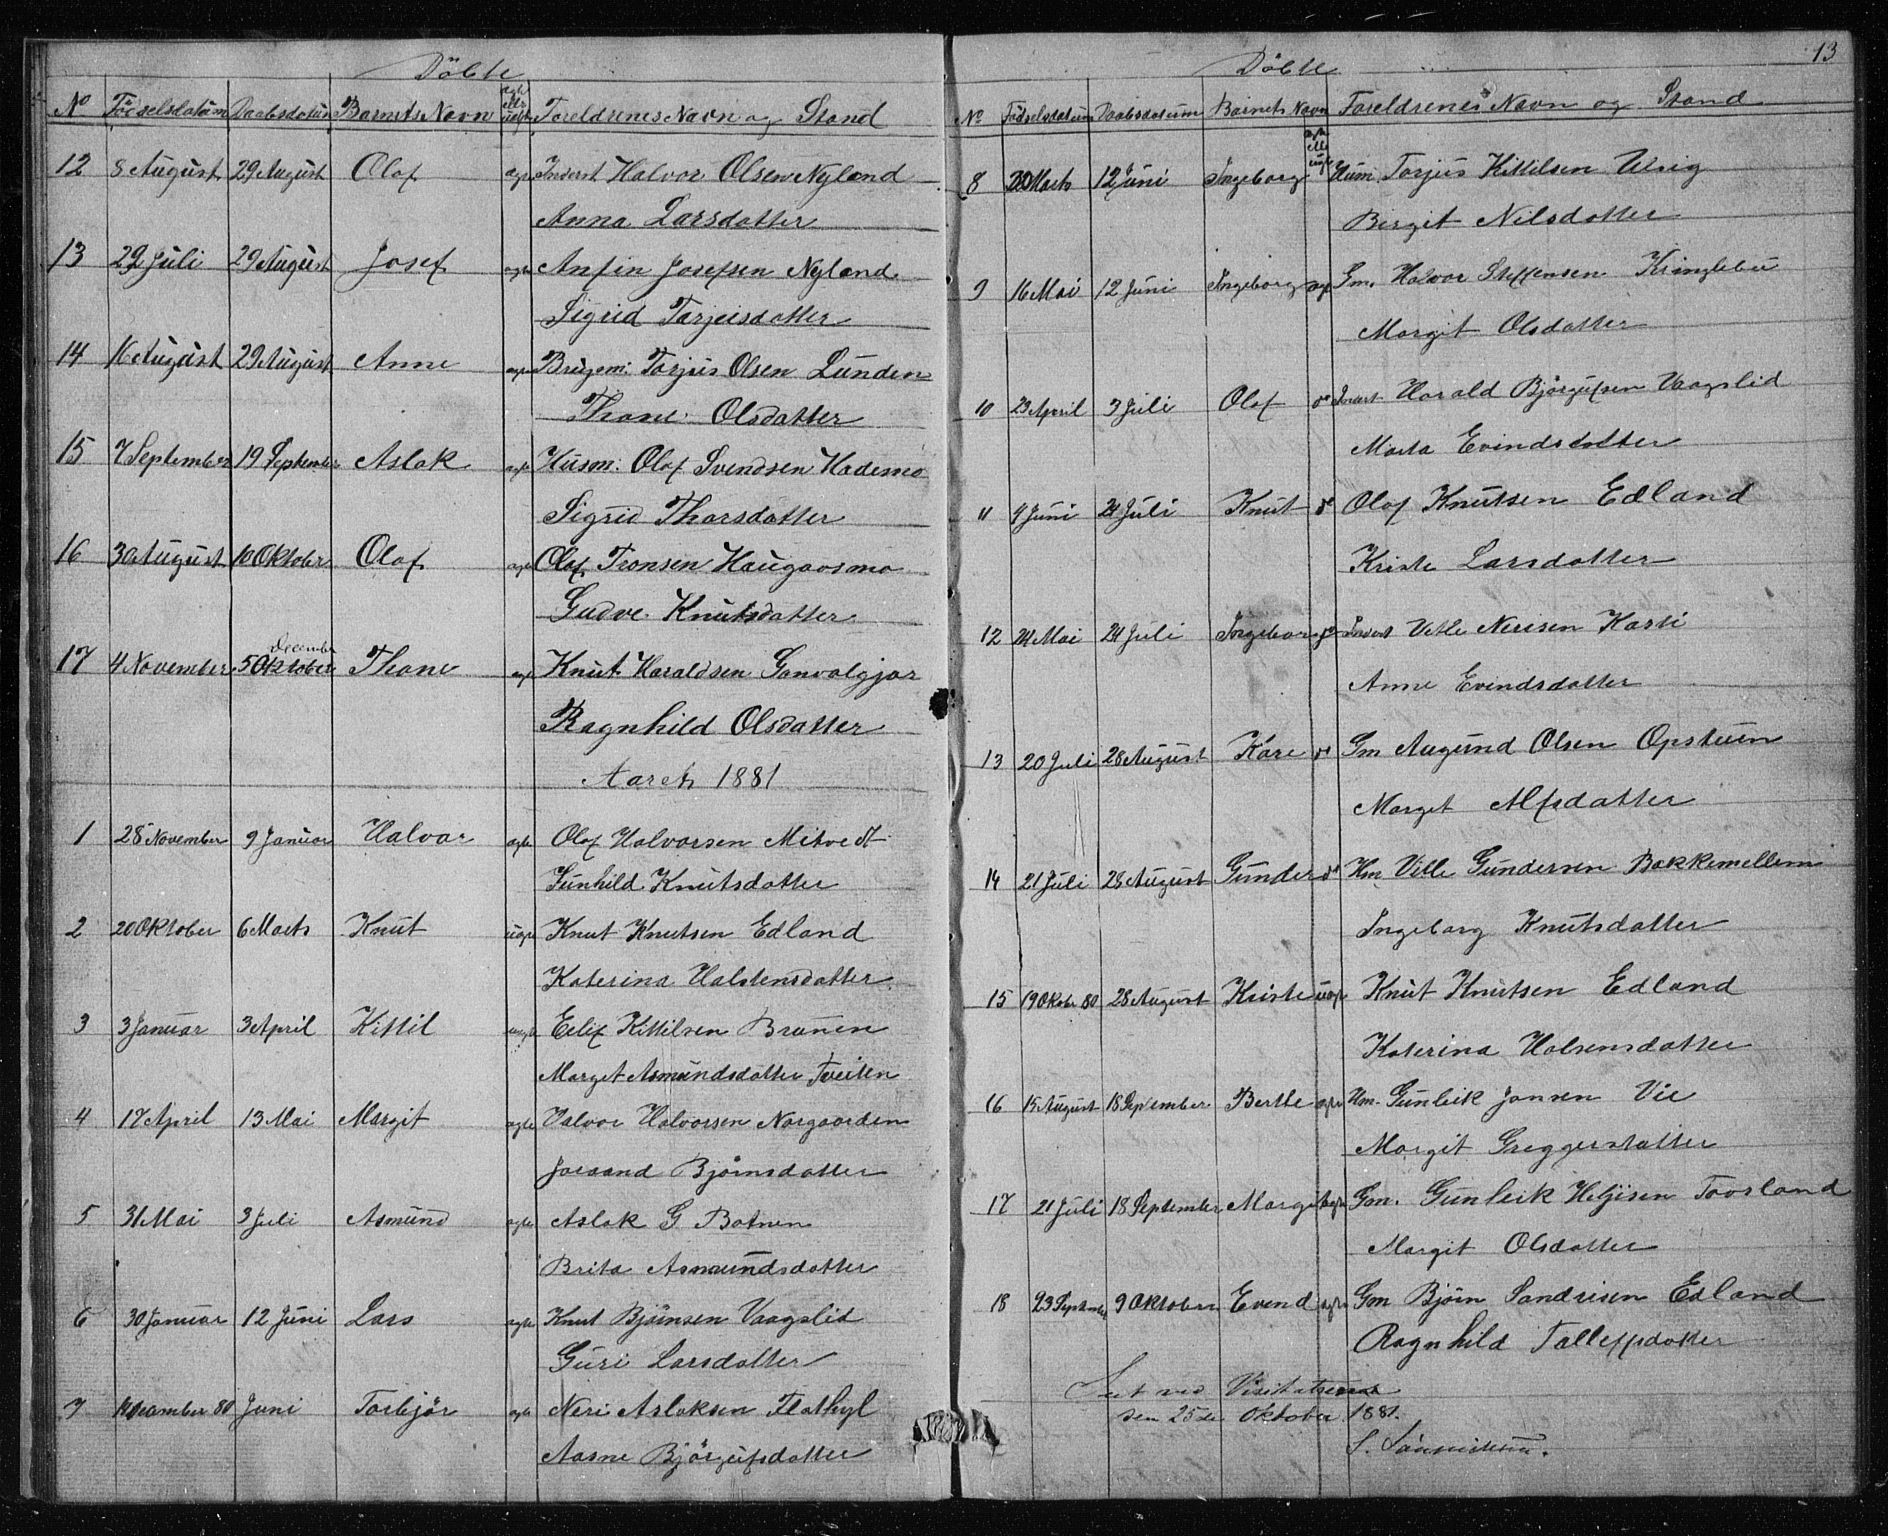 Döbte
No Födselsdatum Daabsdatum Barnets Navn ægte eller uægte Foreldrenes Navn og Stand
12 8 August 29 August Olaf ægte Inderst Halvor Olsen Nyland
Anna Larsdatter
13 29 Juli 29 August Josef ægte Anfin Josefsen Nyland
Sigrid Tarjeisdatter
14 16 August 29 August Anne ægte Brugsm: Torjus Olsen Lunden
Thone Olsdatter
15 7 September 19 September Aslak ægte Husm: Olaf Svendsen Hademo
Sigrid Thorsdatter
16 30 August 10 Oktober Olaf ægte Olaf Tronsen Haugaasmo
Gudve Knutsdatter
December
17 4 November 5 Oktober Thone ægt Knut Haraldsen Sanvalgjar
Ragnhild Olsdatter
Aaret 1881
1 28 November 9 Januar Halvor ægte Olaf Halvorsen Mitvedt
Gunhild Knutsdatter
2 20 Oktober 6 Marts Knut uægte Knut Knutsen Edland
Katerina Halstensdatter
3 3 Januar 3 April Kittil uægte Eilif Kittilsen Brunen
Marget Asmundsdatter Tveiten
4 17 April 13 Mai Margit ægte Halvor Halvorsen Norgaarden
Joraand Bjørnsdatter
5 31 Mai 3 Juli Asmund ægte Aslak G Botnen
Brita Asmundsdatter
6 30 Januar 12 Juni Lars ægte Knut Bjørnsen Vaagslid
Guri Larsdatter
7 December 80 Juni Torbjör ægte Neri Aslaksen Flathyl
Aasne Bjørgufsdatter
13
Döbte
No Födselsdatum Daabsdatum Barnets Navn ægte eller uægte Foreldrenes Navn og Stand
8 20 Marts 12 Juni Ingeborg Husm. Torjus Kittilsen Ursig
Birgit Nilsdatter
9 16 Mai 12 Juni Ingeborg ægt Gm. Halvor Steffensen Kringlebu
Margit Olsdatter
10 23 April 3 Juli Olaf do Inderst Harald Bjørgufsen Vaagslid
Marta Evindsdatter
11 9 Juni 24 Juli Knut do Olaf Knutsen Edland
Kriste Larsdatter
12 24 Mai 24 Juli Ingeborg do Inderst Vetle Nerisen Karli
Anne Evindsdatter
13 20 Juli 28 August Káre do Gm Augund Olsen Opstuen
Marget Alfsdatter
14 21 Juli 28 August Gunder do Hm Vetle Gundersen Bakkemellem
Ingeborg Knutsdatter
15 19 Oktober 80 28 August Kriste uægt Knut Knutsen Edland
Katerina Halsensdatter
16 15 August 18 September Berthe ægte Hm. Gunleik Jonsen Vie
Margit Greggersdatter
17 21 Juli 18 September Margit ægte Gm. Gunleik Heljesen Tovsland
Margit Olsdatter
18 23 September 9 Oktober Evend ægte Gm Bjørn Sandrisen Edland
Ragnhild Talleffsdatter
Seet ved Visitatsen
den 25de Oktober 1881.
S.